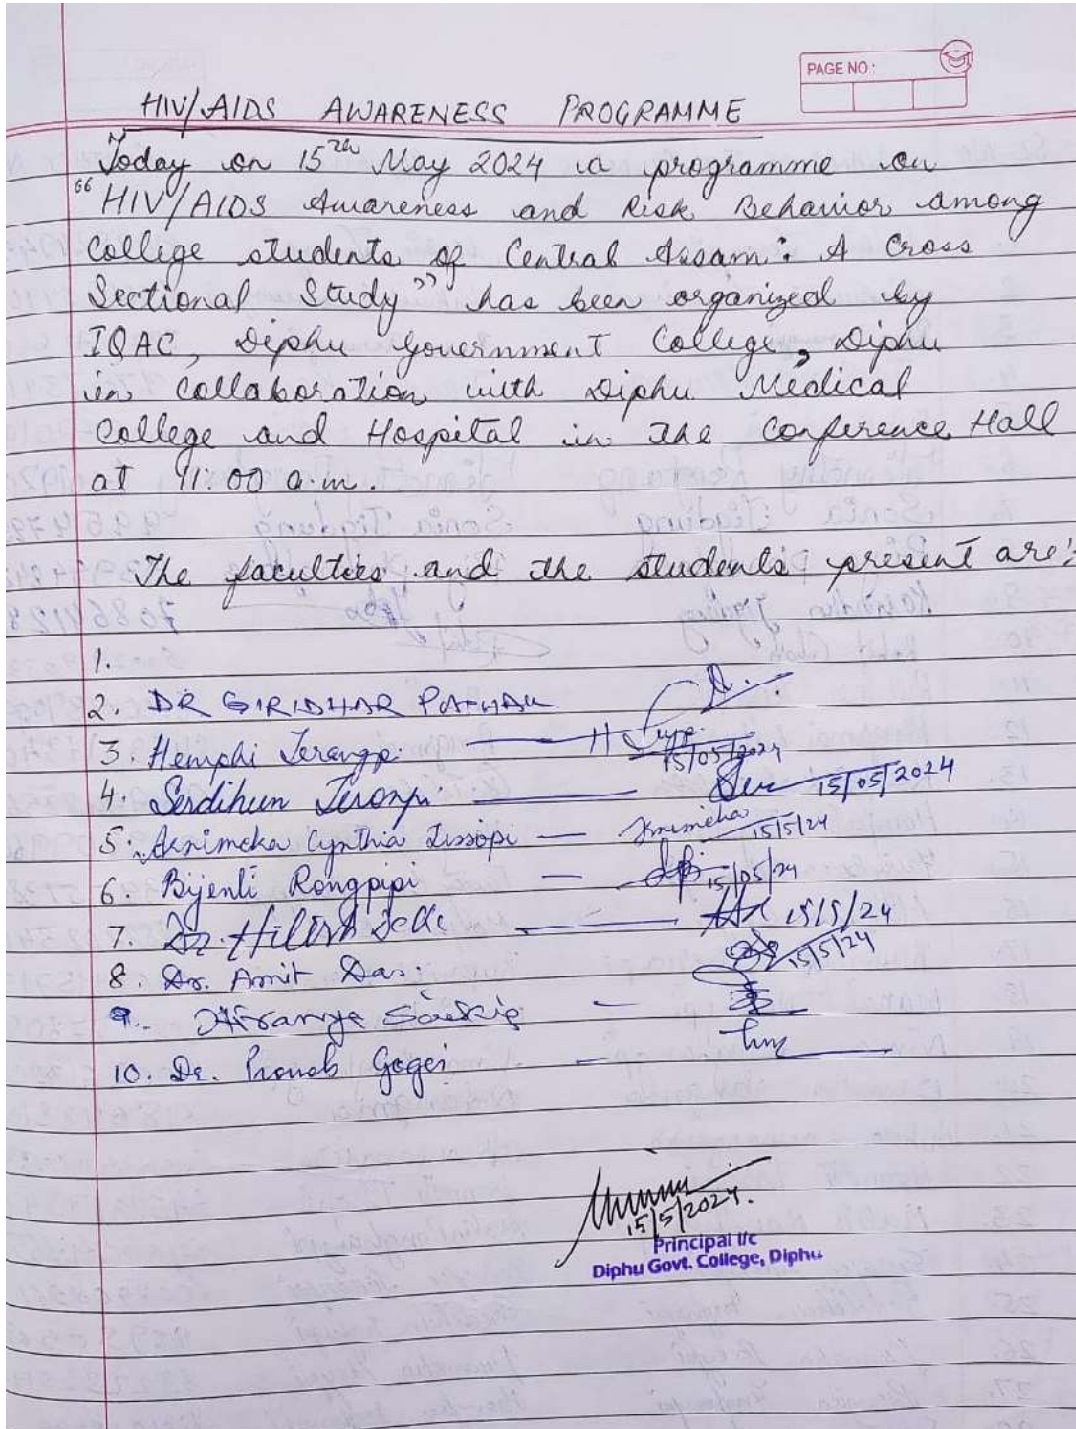 PAGE NO:
HIV/AIDS AWARENESS PROGRAMME
Today on 15th May 2024 a programme on
"HIV/AIDS Awareness and Risk Behavior among
College students of Central Assam: A Cross
Sectional Study" has been organized by
IQAC, Diphu Government College, Diphu
in collaboration with Diphu Medical
College and Hospital in the Conference Hall
at 11:00 a.m.
The faculties and the students present are:
1.
2. DR GIRIDHAR PATHAK
3. Hemphi Terangpi. 15/05/2024
4. Serdihun Teronpi 15/05/2024
5. Cynthia 15/5/24
6. Bijenti Rongpipi 15/05/24
7. Dr. 15/5/24
8. Dr. Amit Das. 15/5/24
9.
10. Dr. Pranab Gogoi
15/5/2024.
Principal i/c
Diphu Govt. College, Diphu